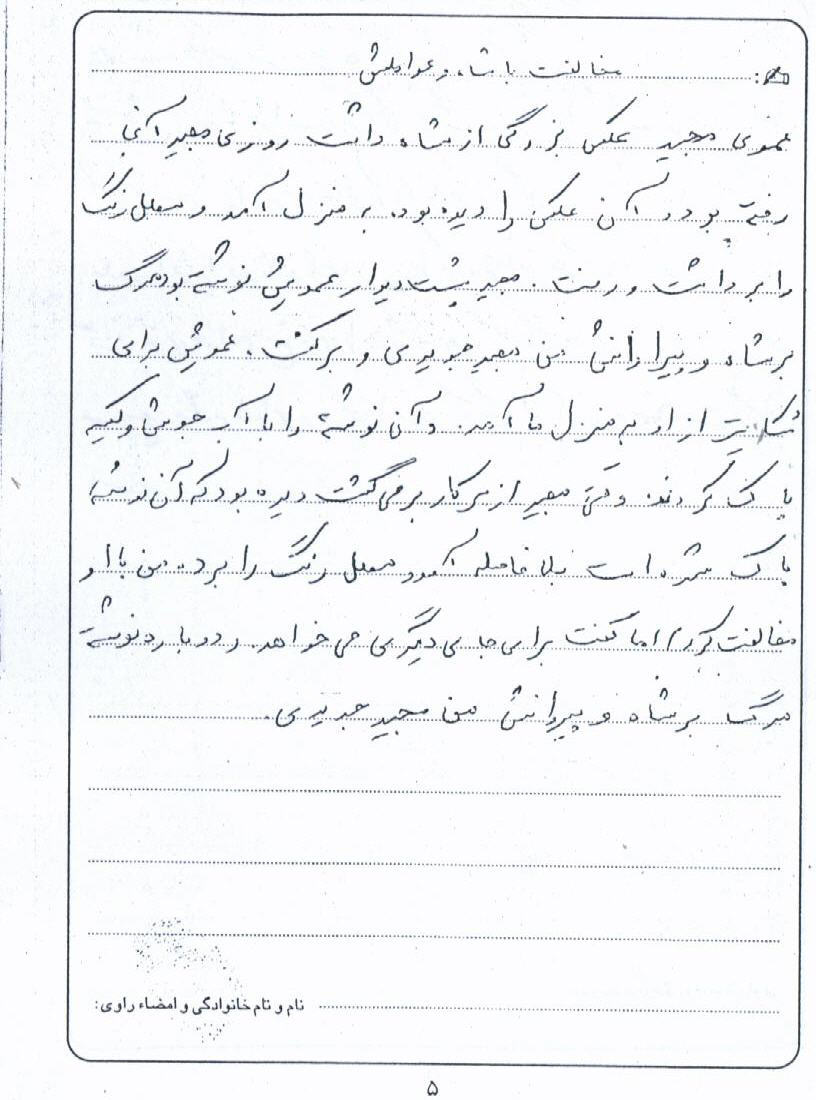 مخالفت با شاه و عواملش
عموی مجید عکس بزرگی از شاه داشت روزی مجید آنجا
رفته بود و آن عکس را دیده بود. به منزل آمد و سطل رنگ
را برداشت و رفت. مجید پشت دیوار عمویش نوشته بود مرگ
بر شاه و پیروانش من مجید حدیدی و برگشت. عمویش برای
شکایت از او به منزل ما آمد. و آن نوشته را با آب جوش و کیسه
پاک کردند. وقتی مجید از سر کار برمی گشت دیده بود که آن نوشته
پاک شده است بلا فاصله آمد و سطل رنگ را برد. من با او
مخالفت کردم اما گفت برای جای دیگری می خواهد. و دوباره نوشته
مرگ بر شاه و پیروانش من مجید حدیدی.
نام و نام خانوادگی و امضاء راوی:
۵